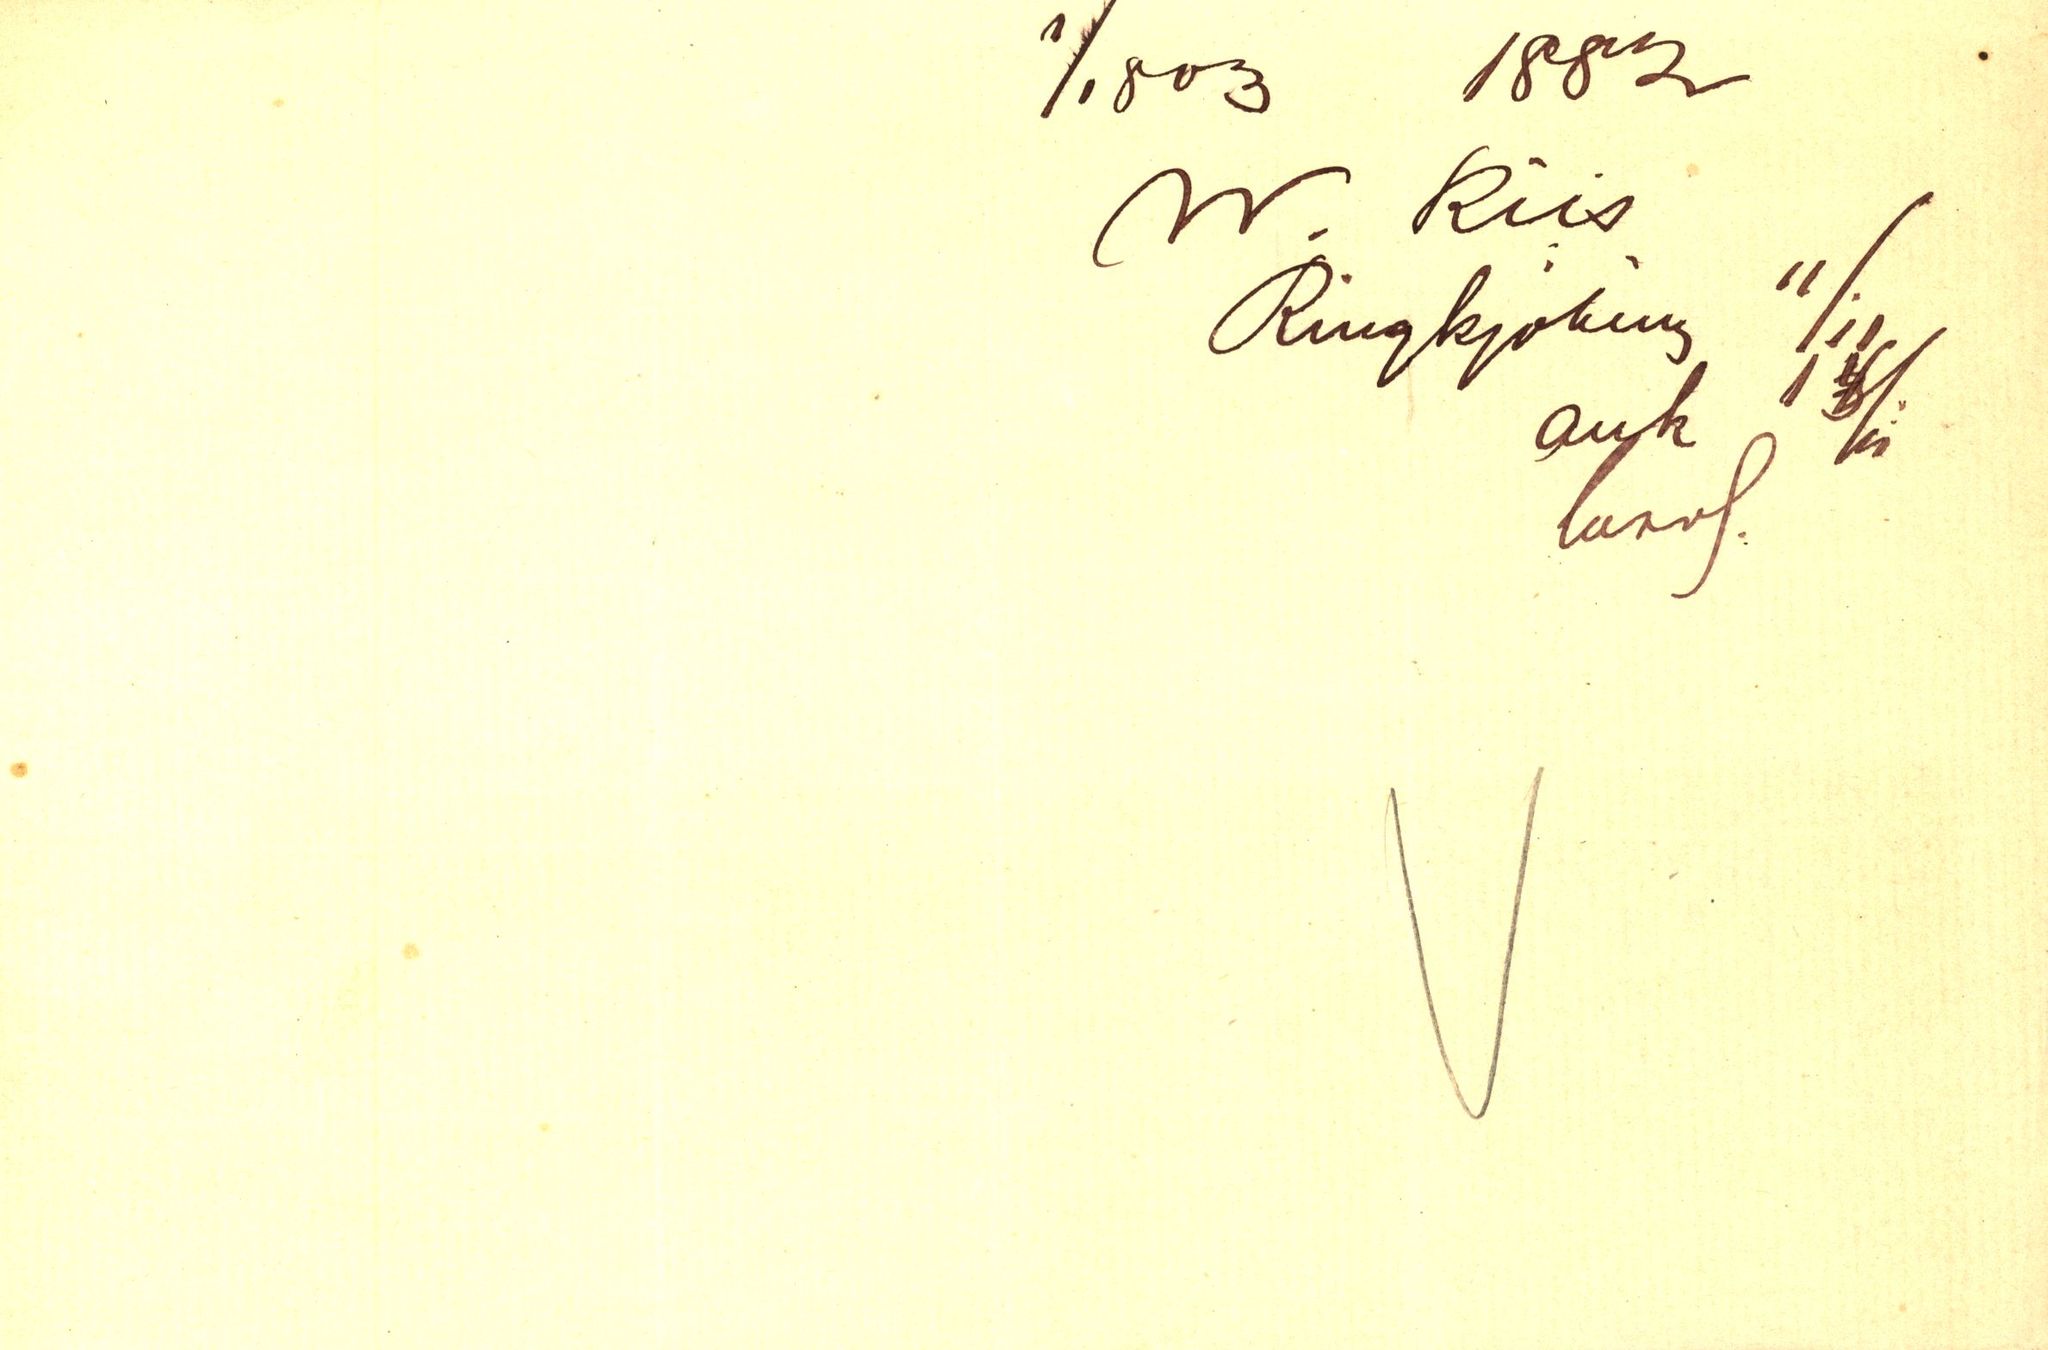 1/1803 1882
W. Riis
Ringkjöbing 11/11
ank 13/11
besv.